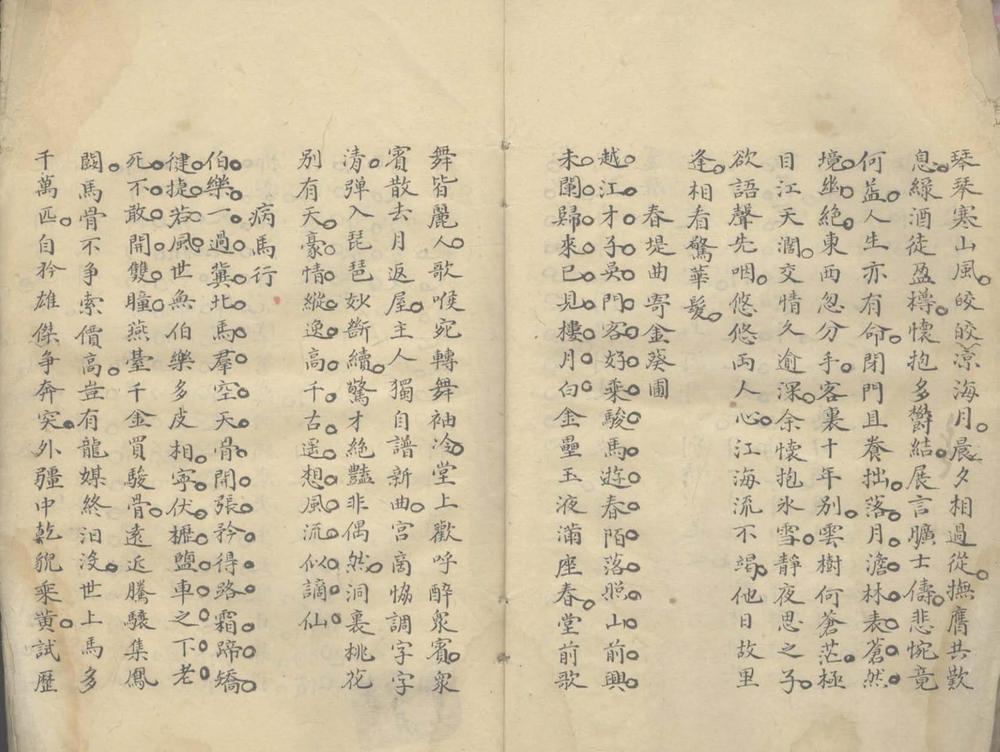 琴琴寒山風皎皎凉海月晨夕相過從撫膺共歎
息綠酒徒盈樽懷抱多鬱結展言曠士儔悲惋竟
何益人生亦有命閉門且養拙落月澹林表蒼然
境幽絕東西忽分手客裏十年別雲樹何蒼茫極
目江天濶交情久逾深余懷抱氷雪靜夜思之子
欲語聲先咽悠悠兩人心江海流不竭他日故里
逢相看驚華髮
春堤曲寄金葵圃
越江才子吳門客好乘駿馬遊春陌落照山前興
未闌歸來已見樓月白金罍玉液滿座春堂前歌
舞皆麗人歌喉宛轉舞袖冷堂上歡呼醉衆賓衆
賓散去月返屋主人獨自譜新曲宮商恊調字字
清彈入琵琶妙斷續驚才絕豔非偶然洞裏桃花
別有天豪情縱逸高千古遥想風流似謫仙
病馬行
伯樂一過冀北馬羣空天骨開張矜得路霜蹄矯
健捷若風世無伯樂多皮相寧伏櫪鹽車之下老
死不敢開雙瞳燕臺千金買駿骨遠近騰驤集鳳
闕馬骨不爭索價高豈有龍媒終汨沒世上馬多
千萬匹自矜雄傑爭奔突外彊中乾貌乘黃試歷